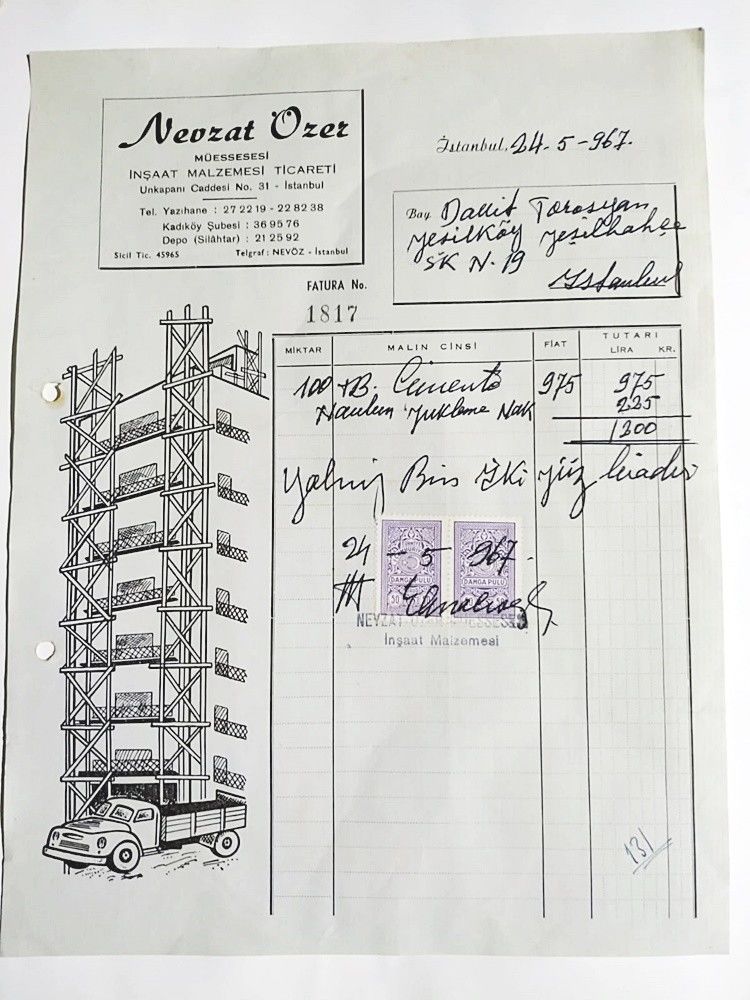 Nevzat Özer
MÜESSESESİ
İNŞAAT MALZEMESİ TİCARETİ
Unkapanı Caddesi No. 31 - İstanbul
Tel. Yazıhane : 27 22 19 - 22 82 38
Kadıköy Şubesi : 36 95 76
Depo (Silâhtar) : 21 25 92
Sicil Tic. 45965 Telgraf : NEVÖZ - İstanbul
İstanbul, 24-5-967.
Bay Torosyan
Yeşilköy Yeşilbahçe
SK N. 19
İstanbul
FATURA No.
1817
MİKTAR MALIN CİNSİ FİAT TUTARI
LİRA KR.
100 Cimento 975 975
Yükleme Nak 225
1200
Yalnız Bin İki yüz liradır
24-5-967.
DAMGA PULU DAMGA PULU
NEVZAT ÖZER MÜESSESESİ
İnşaat Malzemesi
131